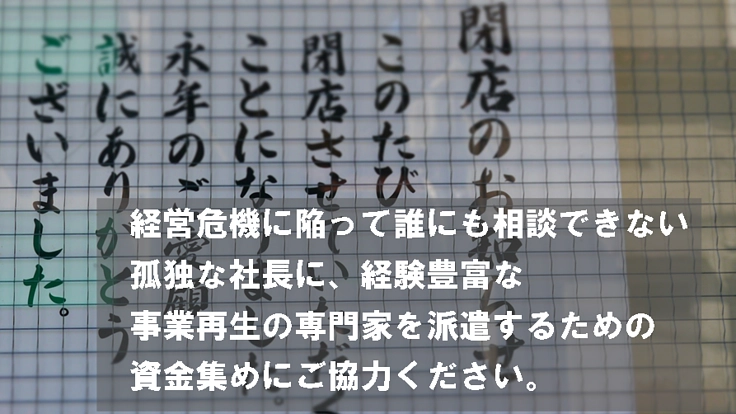 閉店のお知らせ
このたび
閉店させていただく
ことになりました。
永年のご愛顧
誠にありがとう
ございました。
経営危機に陥って誰にも相談できない
孤独な社長に、経験豊富な
事業再生の専門家を派遣するための
資金集めにご協力ください。